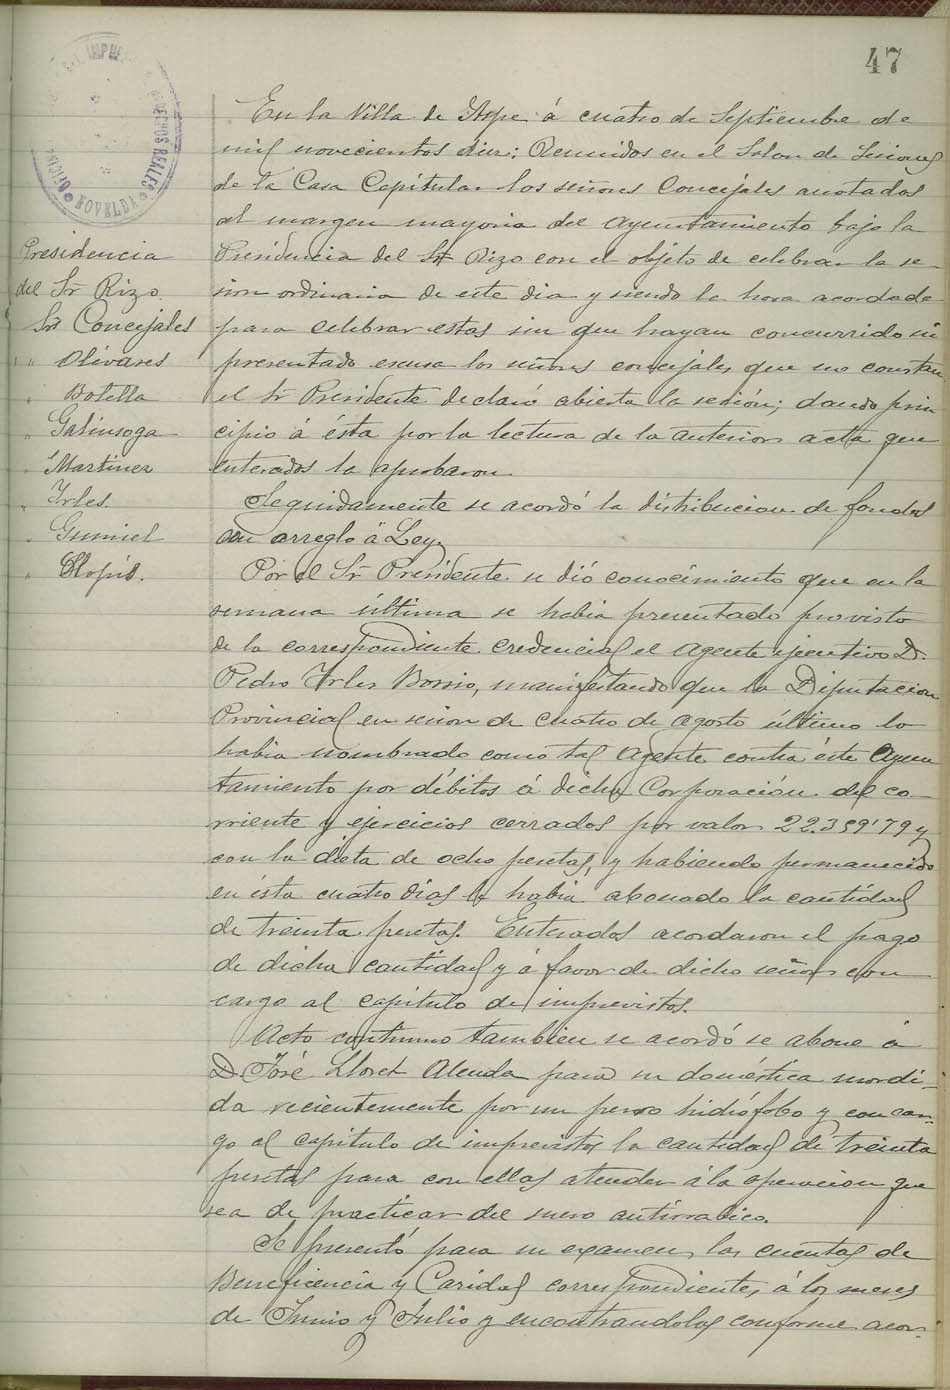 47
En la Villa de Aspe á cuatro de Septiembre de
mil novecientos diez; Reunidos en el Salon de Sesiones
de la Casa Capitular los señores Concejales anotados
al margen mayoria del Ayuntamiento bajo la
Presidencia del Sr Rizo con el objeto de celebrar la se-
sion ordinaria de este dia y siendo la hora acordada
para celebrar estas sin que hayan concurrido ni
presentado escusa los señores concejales que no constan
el Sr Presidente declaró abierta la sesión; dando prin
cipio á ésta por la lectura de la anterior acta que
enterados la aprobaron
Seguidamente se acordó la distribucion de fondos
con arreglo á Ley.
Por el Sr Presidente se dió conocimiento que en la
semana última se habia presentado provisto
de la correspondiente credencial el Agente ejecutivo D.
Pedro Irles manifestando que la Diputacion
Provincial en sesion de cuatro de Agosto último lo
habia nombrado como tal Agente contra éste Ayun
tamiento por débitos á dicha Corporación del co-
rriente y ejercicios cerrados por valor 22.359'79 y
con la dieta de ocho pesetas, y habiendo permanecido
en ésta cuatro dias le habia abonado la cantidad
de treinta pesetas. Enterados acordaron el pago
de dicha cantidad y á favor de dicho señor con
cargo al capitulo de imprevistos.
Acto continuo tambien se acordó se abone á
D. José Lloret Alenda para su doméstica mordi-
da recientemente por un perro hidrófobo y con car-
go al capitulo de imprevistos la cantidad de treinta
pesetas para con ellas atender á la operacion que
sea de practicar del suero antirrabico.
Se presentó para su examen las cuentas de
Beneficencia y Caridad correspondientes á los meses
de Junio y Julio y encontrandolas conforme acor-
Presidencia
del Sr Rizo.
Srs Concejales
" Olivares
" Botella
" Galinsoga
" Martinez
" Irles.
" Gumiel
" Llopis.
DERECHOS REALES
NOVELDA